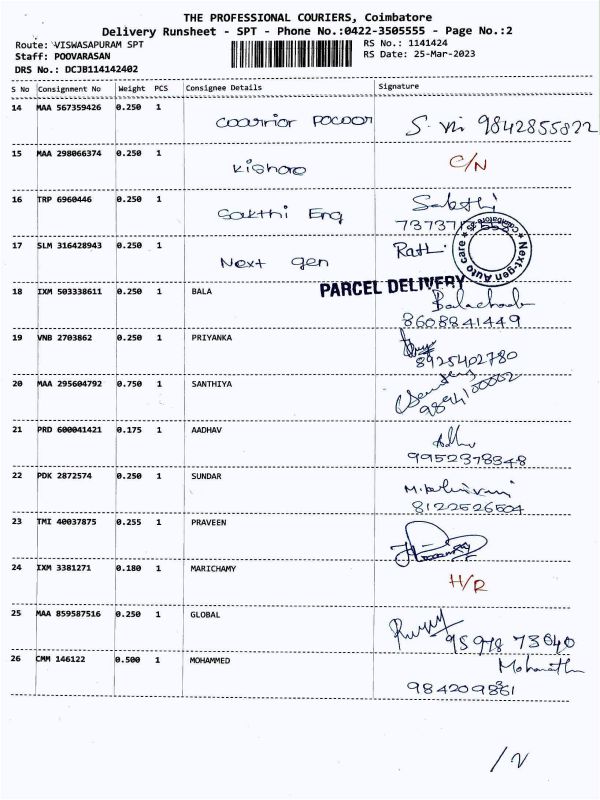 THE PROFESSIONAL COURIERS, Coimbatore
Delivery Runsheet - SPT - Phone No.:0422-3505555 - Page No.:2
Route: VISWASAPURAM SPT
RS No.: 1141424
Staff: POOVARASAN
RS Date: 25-Mar-2023
DRS No.: DCJB114142402
S No Consignment No Weight PCS Consignee Details Signature
14 MAA 567359426 0.250 1
S. 9842855822
15 MAA 298066374 0.250 1 Kishore C/N
16 TRP 6960446 0.250 1 Sakthi Eng Sakthi
17 SLM 316428943 0.250 1 Next gen
Next-gen Auto care
Coimbatore
PARCEL DELIVERY
18 IXM 503338611 0.250 1 BALA
8608841449
19 VNB 2703862 0.250 1 PRIYANKA
8925402780
20 MAA 295604792 0.750 1 SANTHIYA
21 PRD 600041421 0.175 1 AADHAV
9952378348
22 PDK 2872574 0.250 1 SUNDAR
8122526504
23 TMI 40037875 0.255 1 PRAVEEN
24 IXM 3381271 0.180 1 MARICHAMY H/R
25 MAA 859587516 0.250 1 GLOBAL
95978 73640
26 CMM 146122 0.500 1 MOHAMMED